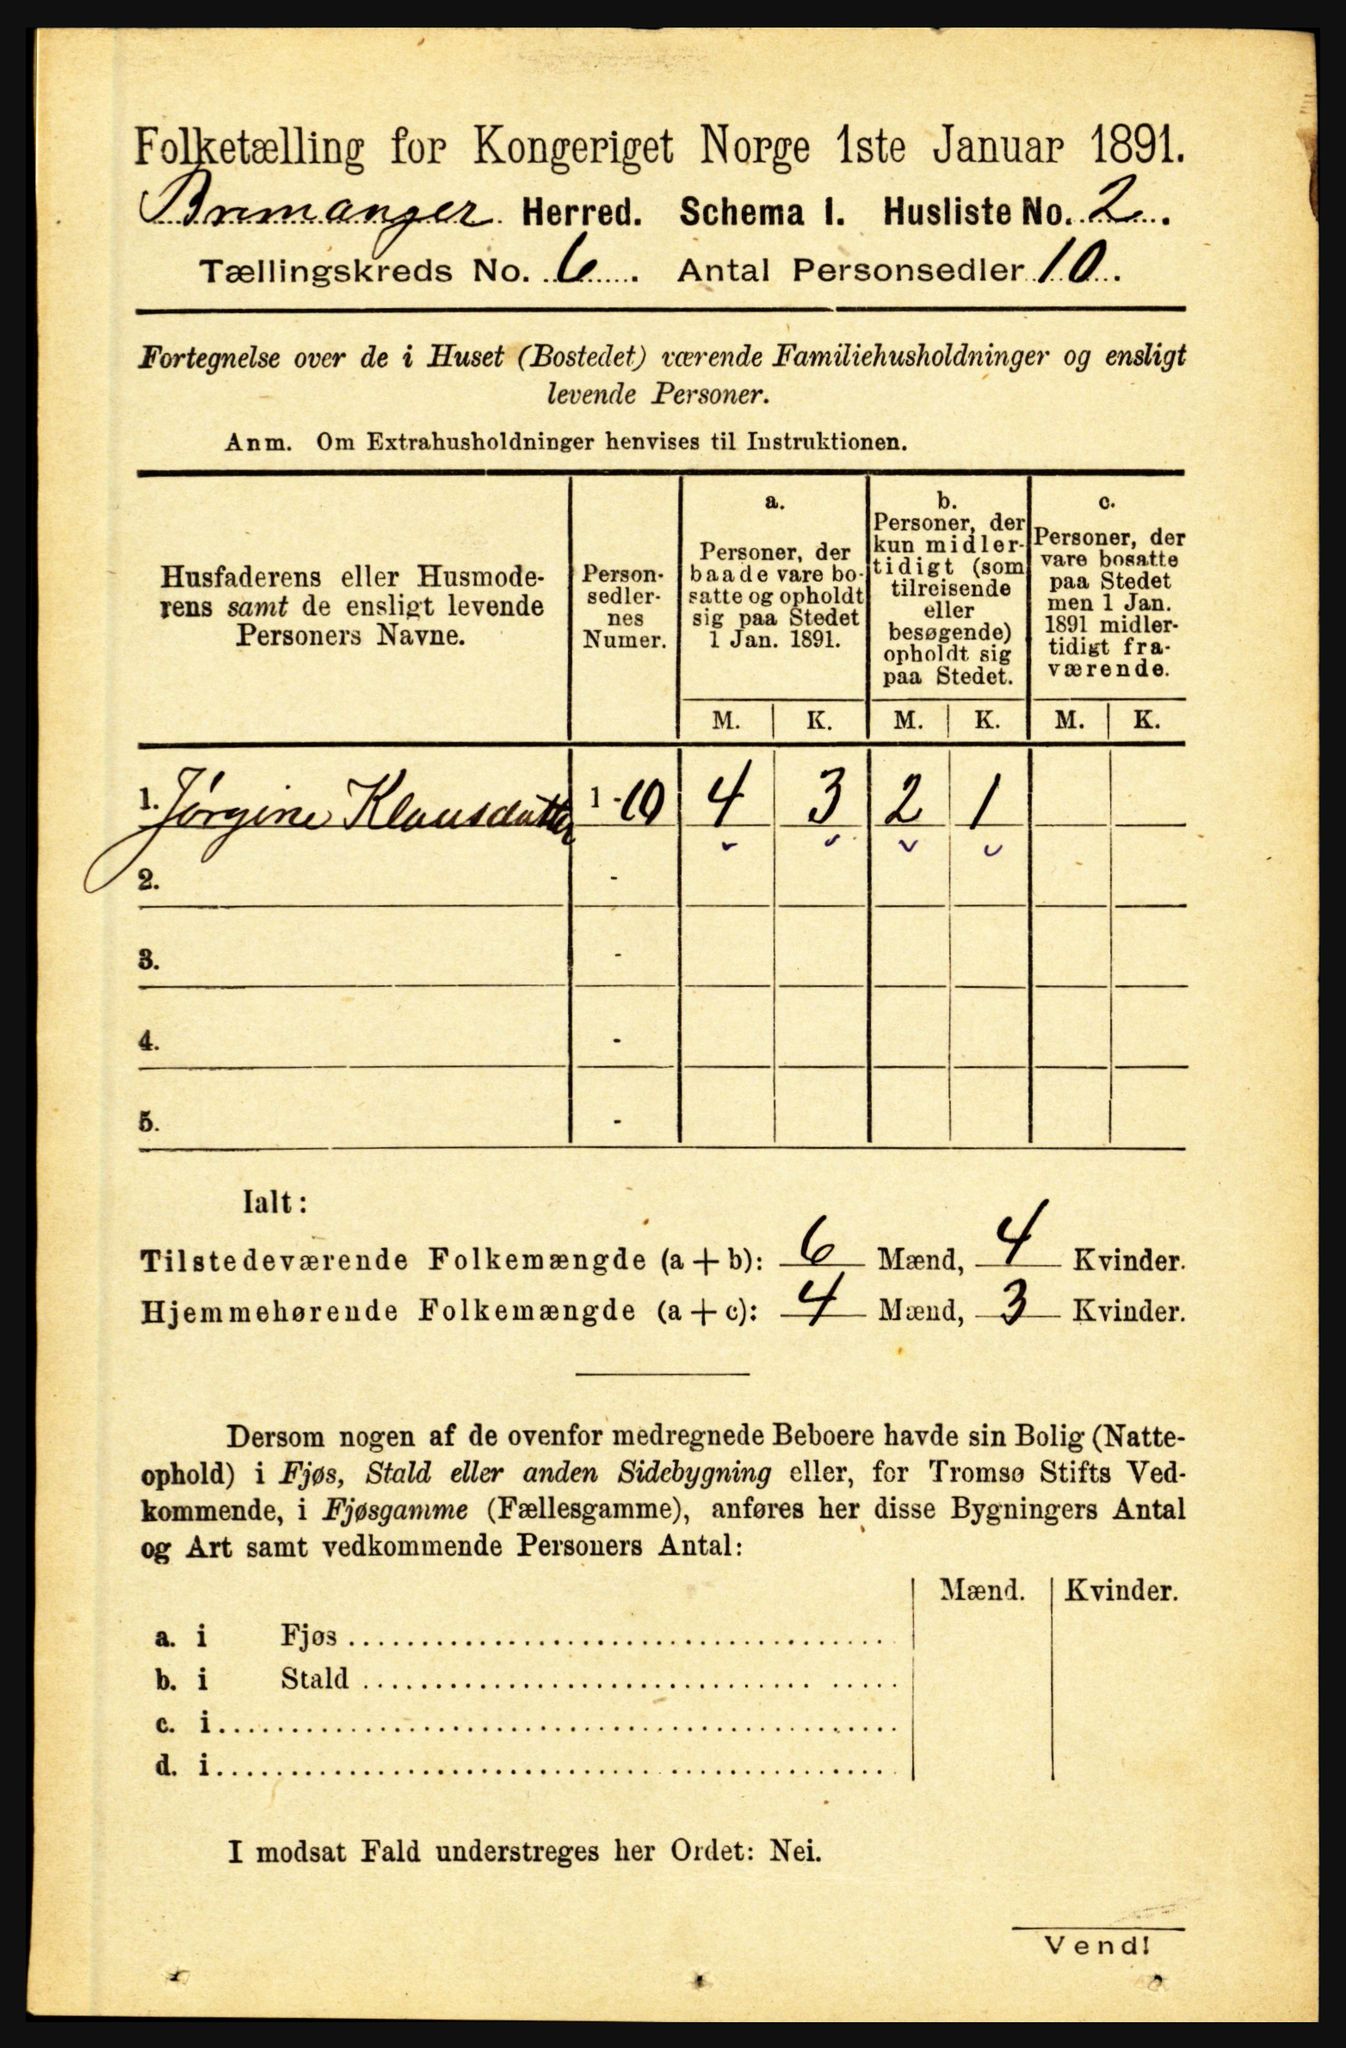 Folketælling for Kongeriget Norge 1ste Januar 1891.
Bremanger Herred. Schema I. Husliste No. 2.
Tællingskreds No. 6. Antal Personsedler 10.
Fortegnelse over de i Huset (Bostedet) værende Familiehusholdninger og ensligt
levende Personer.
Anm. Om Extrahusholdninger henvises til Instruktionen.
Husfaderens eller Husmode-
rens samt de ensligt levende
Personers Navne.
Person-
sedler-
nes
Numer.
a.
Personer, der
baade vare bo-
satte og opholdt
sig paa Stedet
1 Jan. 1891.
b.
Personer, der
kun midler-
tidigt (som
tilreisende
eller
besøgende)
opholdt sig
paa Stedet.
c.
Personer, der
vare bosatte
paa Stedet
men 1 Jan.
1891 midler-
tidigt fra-
værende.
M. K. M. K. M. K.
1. Jørgine Klausdatter 1 - 10 4 3 2 1
2. -
3. -
4. -
5. -
Ialt:
Tilstedeværende Folkemængde (a + b): 6 Mænd, 4 Kvinder.
Hjemmehørende Folkemængde (a + c): 4 Mænd, 3 Kvinder.
Dersom nogen af de ovenfor medregnede Beboere havde sin Bolig (Natte-
ophold) i Fjøs, Stald eller anden Sidebygning eller, for Tromsø Stifts Ved-
kommende, i Fjøsgamme (Fællesgamme), anføres her disse Bygningers Antal
og Art samt vedkommende Personers Antal:
Mænd. Kvinder.
a. i Fjøs
b. i Stald
c. i
d. i
I modsat Fald understreges her Ordet: Nei.
Vend!